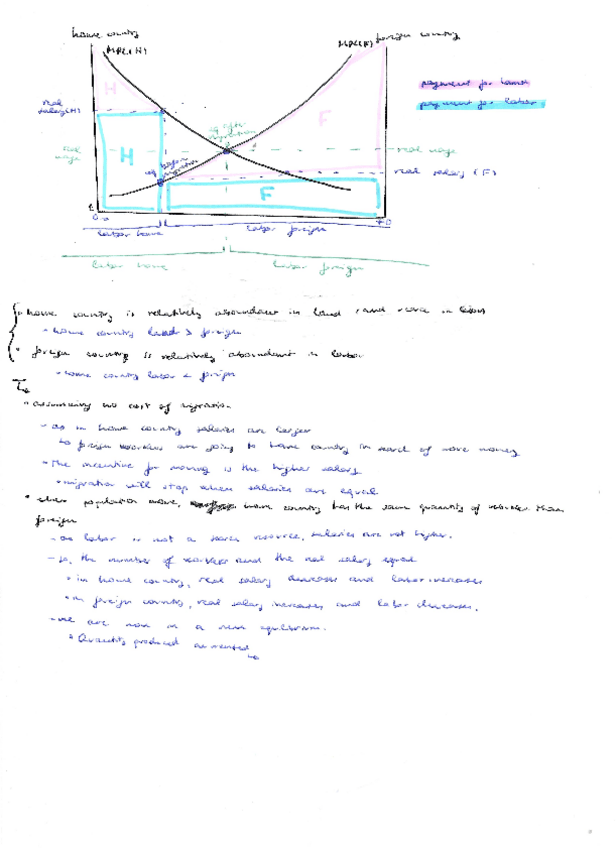 home country
foreign country
MPL(H)
MPL(F)
payment for land
payment for labor
H
F
real salary(H)
eq after migration
real wage
real wage
H
eq before migration
real salary (F)
F
labor home
labor foreign
labor home
labor foreign
• home country is relatively aboundant in land
• home country land > foreign
• foreign country is relatively aboundant in labor
- home country labor < foreign
• assumming no cost of migration.
- as in home country salaries are larger
↳ foreign workers are going to home country in search of more money
- The incentive for moving is the higher salary
• migration will stop when salaries are equal
• when population move, home country has the same quantity of workers than
foreign
- as labor is not a scarce resource, salaries are not higher.
- so, the number of workers and the real salary equal
• in home country, real salary decreases and labor increases
• in foreign country, real salary increases and labor decreases.
- we are now in a new equilibrium.
• Quantity produced aumented